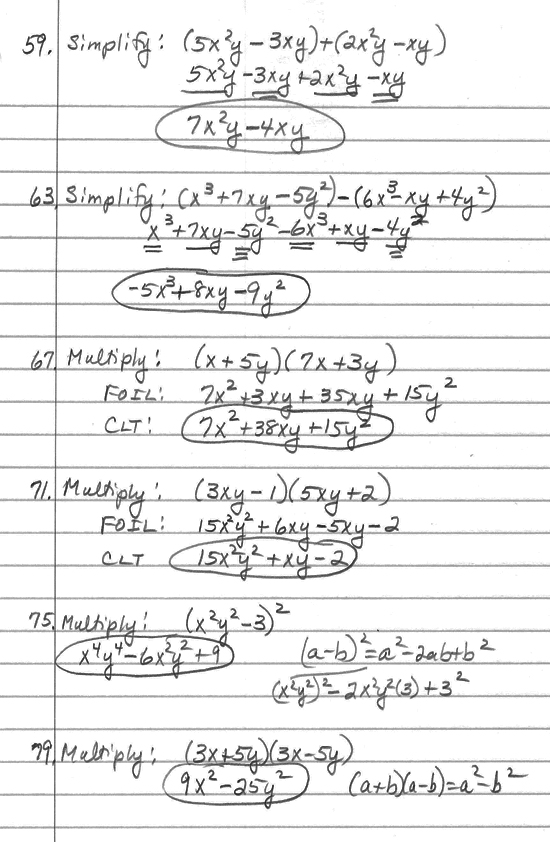 59. Simplify: (5x²y - 3xy)+(2x²y - xy)
5x²y - 3xy + 2x²y - xy
7x²y - 4xy
63. Simplify: (x³+7xy-5y²)-(6x³-xy+4y²)
x³+7xy-5y²-6x³+xy-4y²
-5x³+8xy-9y²
67. Multiply: (x+5y)(7x+3y)
FOIL: 7x²+3xy+35xy+15y²
CLT: 7x²+38xy+15y²
71. Multiply: (3xy-1)(5xy+2)
FOIL: 15x²y²+6xy-5xy-2
CLT 15x²y²+xy-2
75. Multiply: (x²y²-3)²
x⁴y⁴-6x²y²+9 (a-b)²=a²-2ab+b²
(x²y²)²-2x²y²(3)+3²
79. Multiply: (3x+5y)(3x-5y)
9x²-25y² (a+b)(a-b)=a²-b²